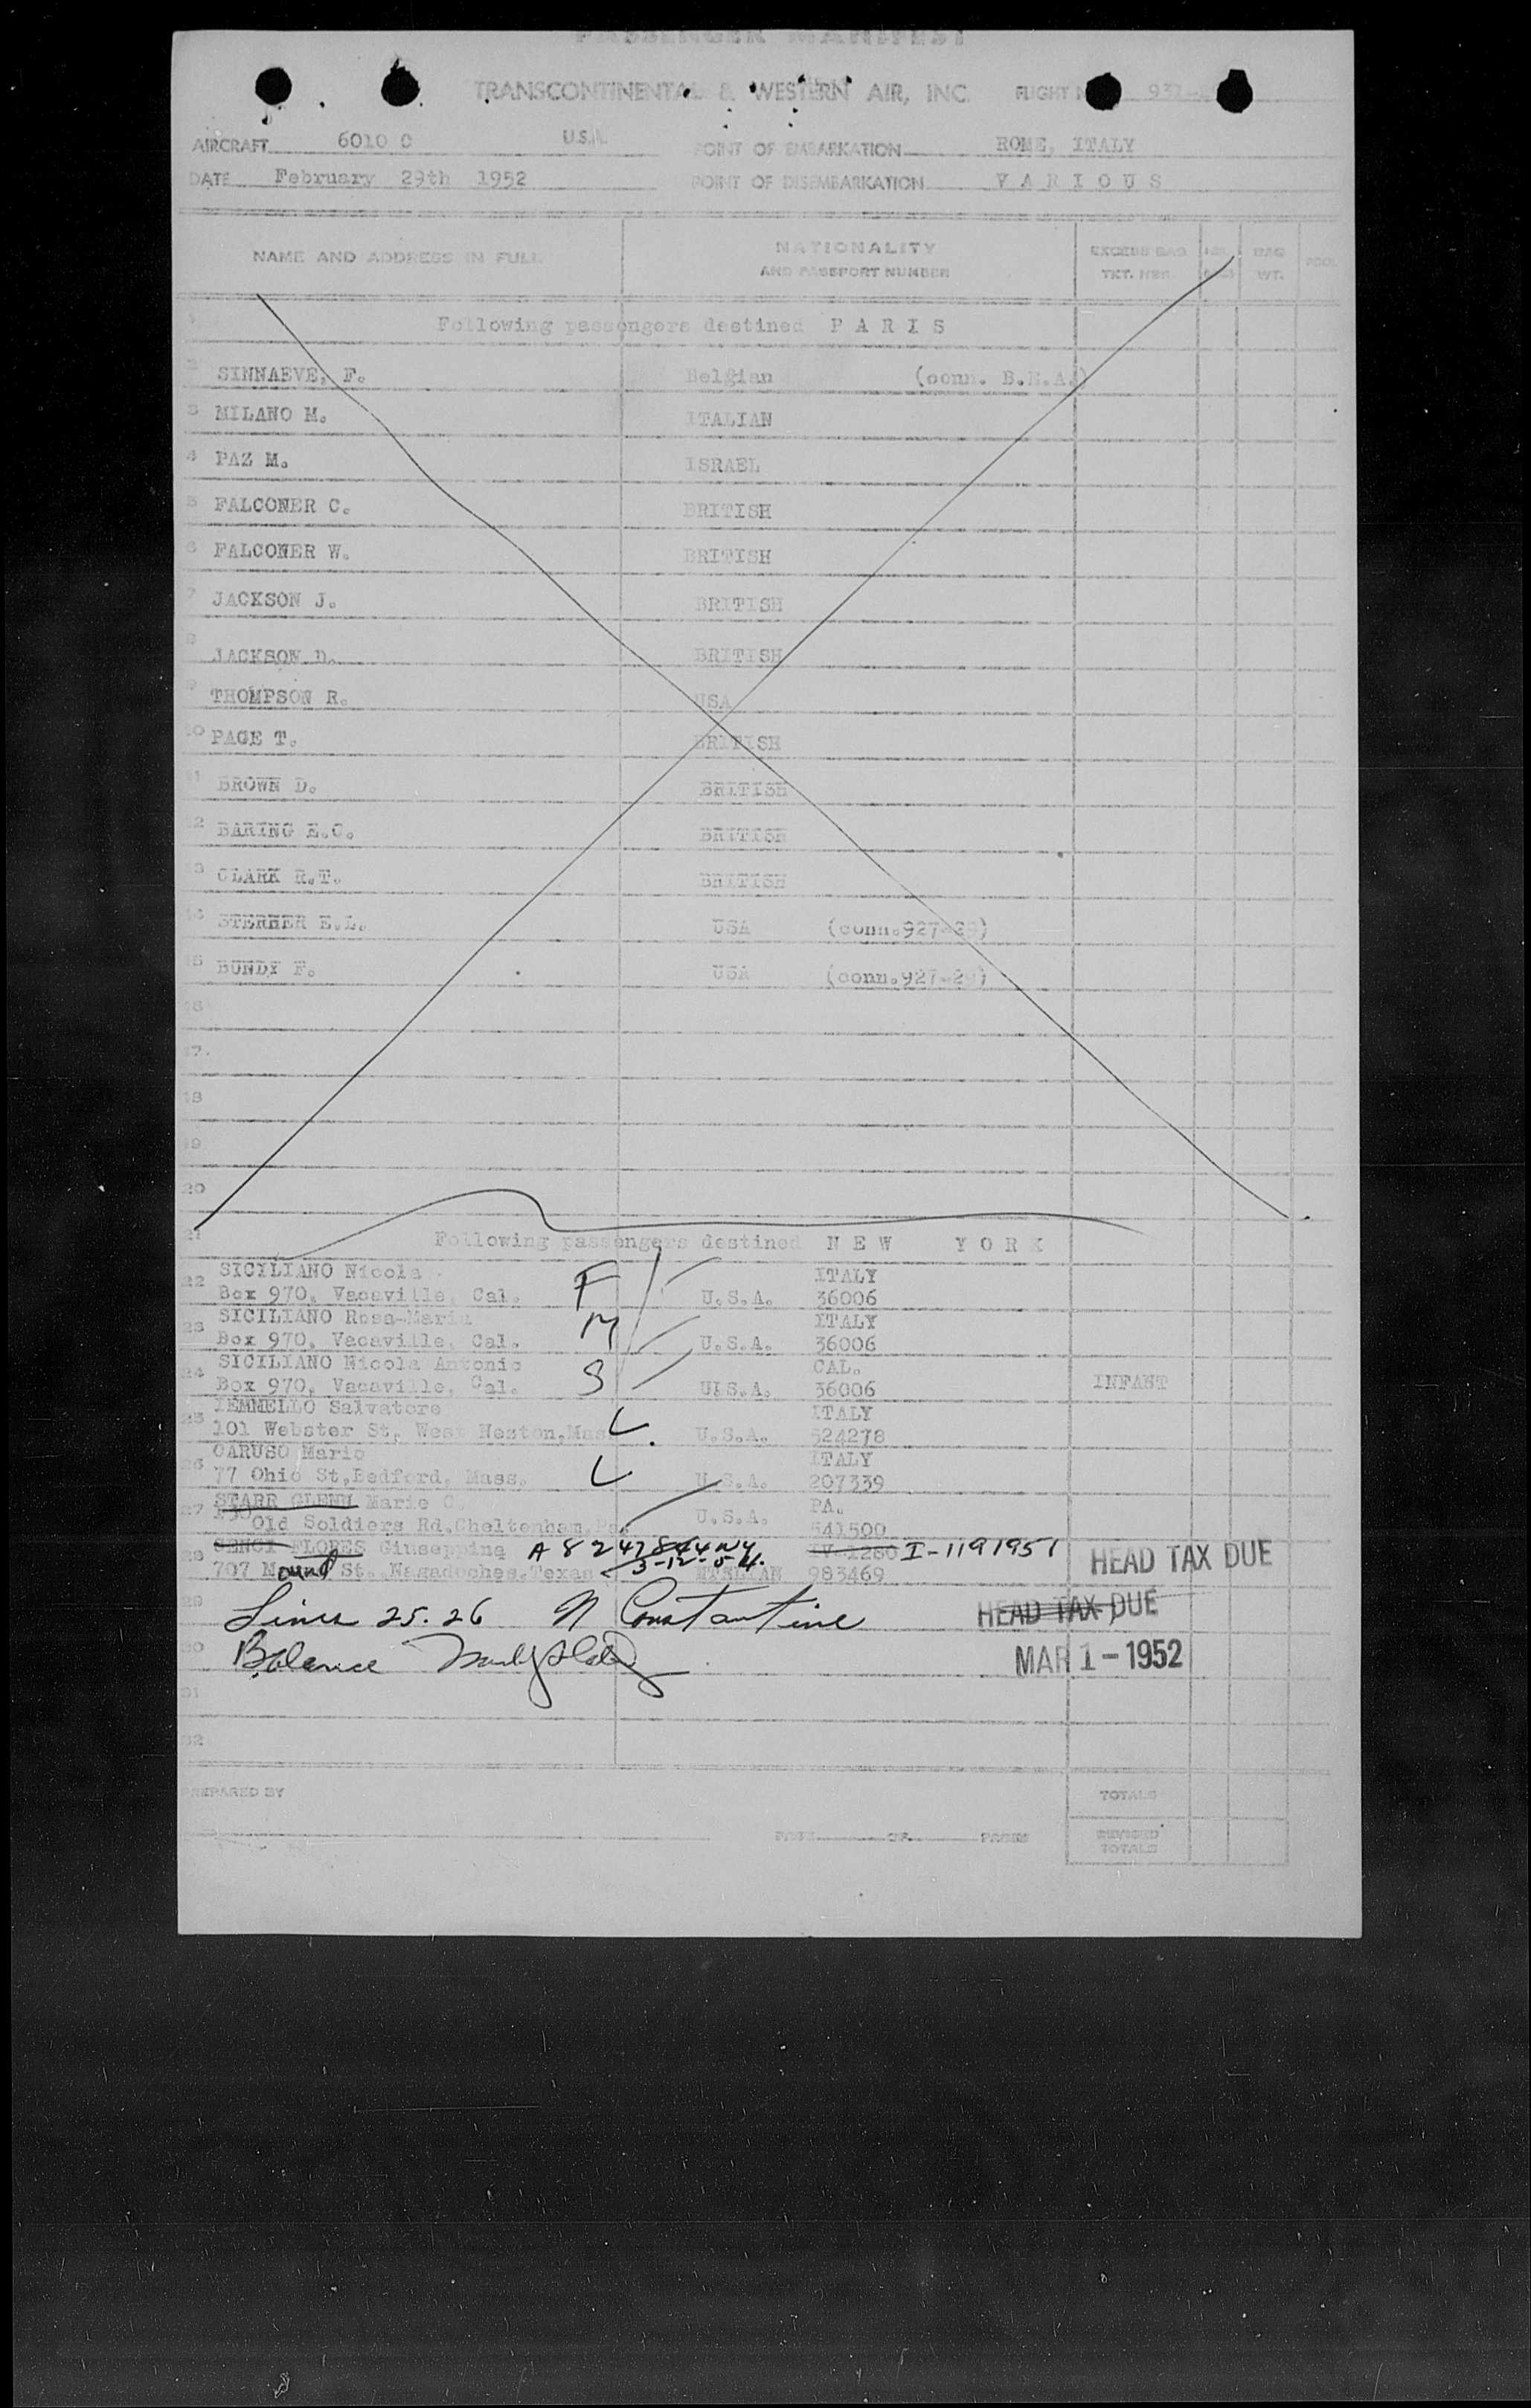 PASSENGER MANIFEST
TRANSCONTINENTAL & WESTERN AIR, INC. FLIGHT
AIRCRAFT 6010 C U.S.A. POINT OF EMBARKATION ROME, ITALY
DATE February 29th 1952 POINT OF DISEMBARKATION VARIOUS
NAME AND ADDRESS IN FULL NATIONALITY AND PASSPORT NUMBER EXCESS BAG TKT. NBR. BAG WT.
1 Following passengers destined PARIS
2 SINNAEVE, F. Belgian (conn. B.E.A.)
3 MILANO M. ITALIAN
4 PAZ M. ISRAEL
5 FALCONER C. BRITISH
6 FALCONER W. BRITISH
7 JACKSON J. BRITISH
8 JACKSON D. BRITISH
9 THOMPSON R. USA
10 PAGE T. BRITISH
11 BROWN D. BRITISH
12 BARING E.C. BRITISH
13 CLARK R.T. BRITISH
14 STERNER E.L. USA (conn.927-29)
15 BUNDY F. USA (conn.927-29)
16
17
18
19
20
21 Following passengers destined NEW YORK
SICILIANO Nicola ITALY
22 Box 970, Vacaville, Cal. F U.S.A. 36006
SICILIANO Rosa-Maria ITALY
23 Box 970, Vacaville, Cal. M U.S.A. 36006
SICILIANO Nicola Antonio CAL.
24 Box 970, Vacaville, Cal. S U.S.A. 36006 INFANT
IEMMELLO Salvatore ITALY
25 101 Webster St, West Newton, Mass. U.S.A. 524278
CARUSO Mario ITALY
26 77 Ohio St, Bedford, Mass. U.S.A. 207339
STARR GLENN Marie C. PA.
27 Old Soldiers Rd, Cheltenham, Pa. U.S.A. 541500
CENCI FLORES Giuseppina A 8 247844 NY I-1191951 HEAD TAX DUE
28 707 Mound St. Nagadoches, Texas 3-12-54. ITALIAN 983469
29 Lines 25.26 N Constantine HEAD TAX DUE
30 Balance MAR 1 - 1952
31
32
PREPARED BY TOTALS
PAGE OF PAGES REVISED TOTALS